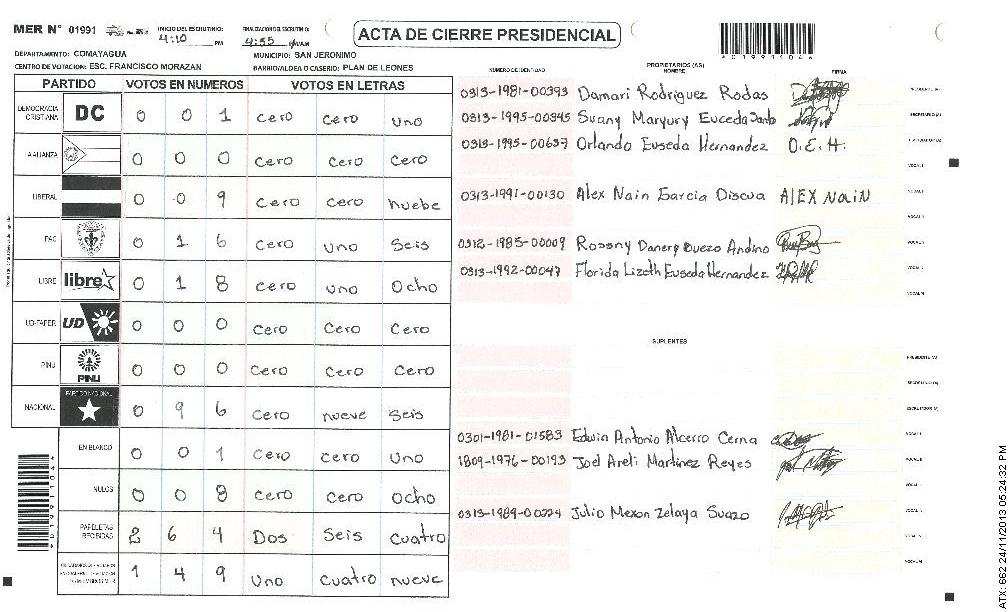 MER N° 01991
INICIO DEL ESCRUTINIO: 4:10 PM
FINALIZACION DEL ESCRUTINIO: 4:55
ACTA DE CIERRE PRESIDENCIAL
DEPARTAMENTO: COMAYAGUA
MUNICIPIO: SAN JERONIMO
CENTRO DE VOTACION: ESC. FRANCISCO MORAZAN
BARRIO/ALDEA O CASERIO: PLAN DE LEONES
PARTIDO VOTOS EN NUMEROS VOTOS EN LETRAS
DEMOCRACIA CRISTIANA DC 0 0 1 cero cero uno
ALIANZA 0 0 0 Cero Cero Cero
LIBERAL 0 0 9 Cero cero nuebe
PAC 0 1 6 Cero uno Seis
LIBRE libre 0 1 8 cero uno Ocho
UD-FAPER UD 0 0 0 Cero Cero Cero
PINU PINU 0 0 0 Cero Cero Cero
NACIONAL PARTIDO NACIONAL 0 9 6 Cero nueve Seis
EN BLANCO 0 0 1 Cero cero Uno
NULOS 0 0 8 Cero cero ocho
PAPELETAS RECIBIDAS 2 6 4 Dos Seis cuatro
1 4 9 Uno cuatro nueve
NUMERO DE IDENTIDAD PROPIETARIOS (AS) NOMBRE FIRMA
0313-1981-00393 Damari Rodriguez Rodas
0313-1995-00345 Suany Maryury Euceda Santo
0313-1995-00637 Orlando Euseda Hernandez O.E.H.
0313-1991-00130 Alex Nain Garcia Discua AlEX NaiN
0312-1985-00009 Rossny Danery Buezo Andino
0313-1992-00047 Florida Lizeth Euseda Hernandez
SUPLENTES
0301-1981-01583 Edwin Antonio Alcerro Cerna
1809-1976-00193 Joel Areli Martinez Reyes
0313-1989-00224 Julio Mexon Zelaya Suazo
ATX: 662 24/11/2013 05:24:32 PM